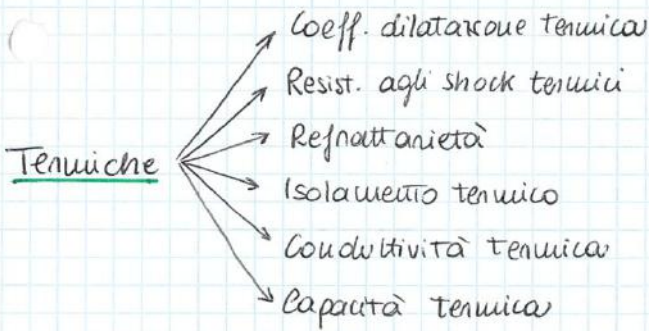 Coeff. dilatazione termica
Resist. agli shock termici
Refrattarietà
Termiche
Isolamento termico
Conduttività termica
Capacità termica